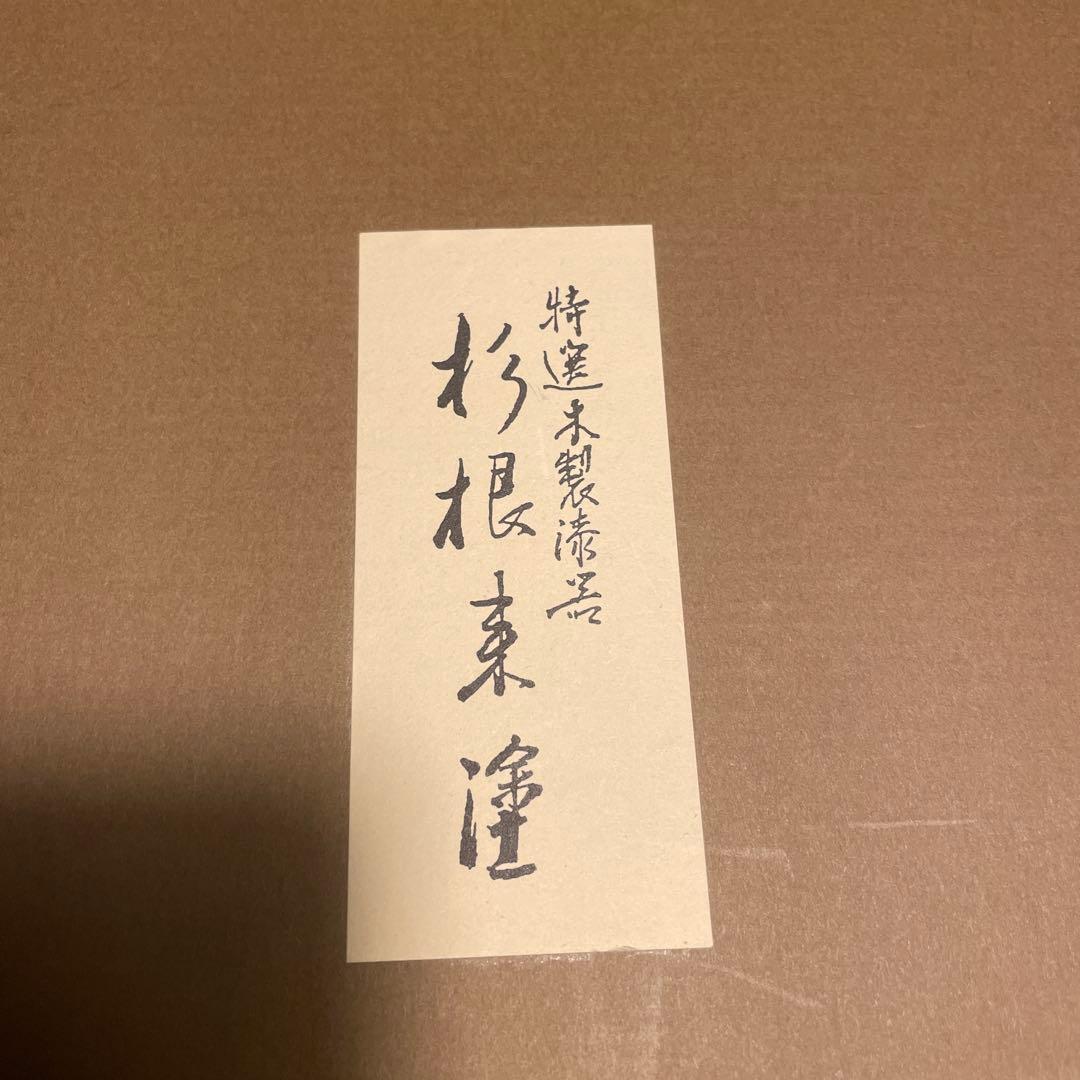 特選木製漆器
杉根来塗